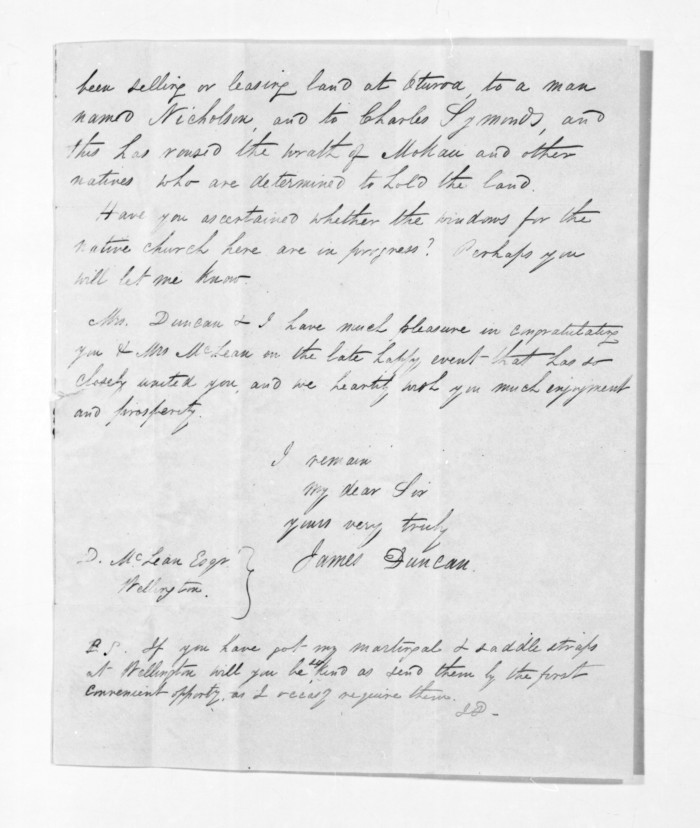 been selling or leasing land at Oturoa, to a man
named Nicholson, and to Charles Symonds, and
this has roused the wrath of Mokau and other
natives who are determined to hold the land.
Have you ascertained whether the windows for the
native church here are in progress? Perhaps you
will let me know.
Mrs. Duncan & I have much pleasure in congratulating
you & Mrs McLean on the late happy event that has so
closely united you, and we heartily wish you much enjoyment
and prosperity.
I remain
my dear Sir
yours very truly
James Duncan.
D. McLean Esqr.
Wellington.
P.S. If you have got my martingal & saddle straps
at Wellington will you be so kind as send them by the first
convenient opporty. as I require them.
JD-